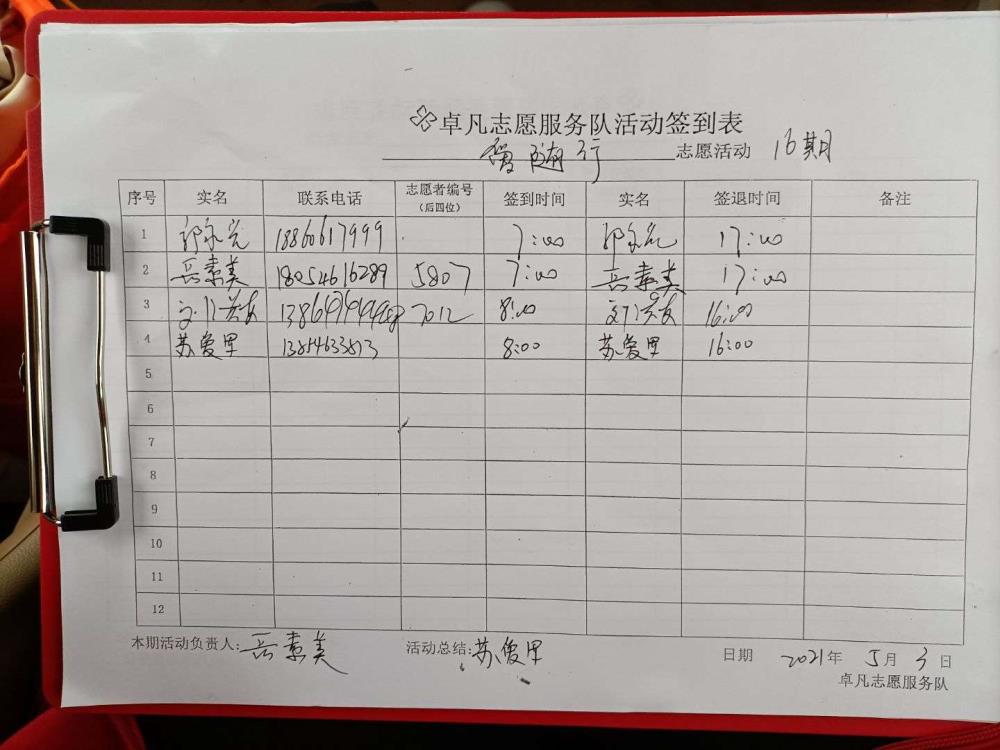 卓凡志愿服务队活动签到表
爱随行 志愿活动 16期
序号 实名 联系电话 志愿者编号（后四位） 签到时间 实名 签退时间 备注
1 18866617999 7:00 17:00
2 岳素美 18054616289 5807 7:00 岳素美 17:00
3 7012 8:00 16:00
4 苏爱里 8:00 苏爱里 16:00
5
6
7
8
9
10
11
12
本期活动负责人:岳素美 活动总结:苏爱里 日期 2021年5月3日
卓凡志愿服务队